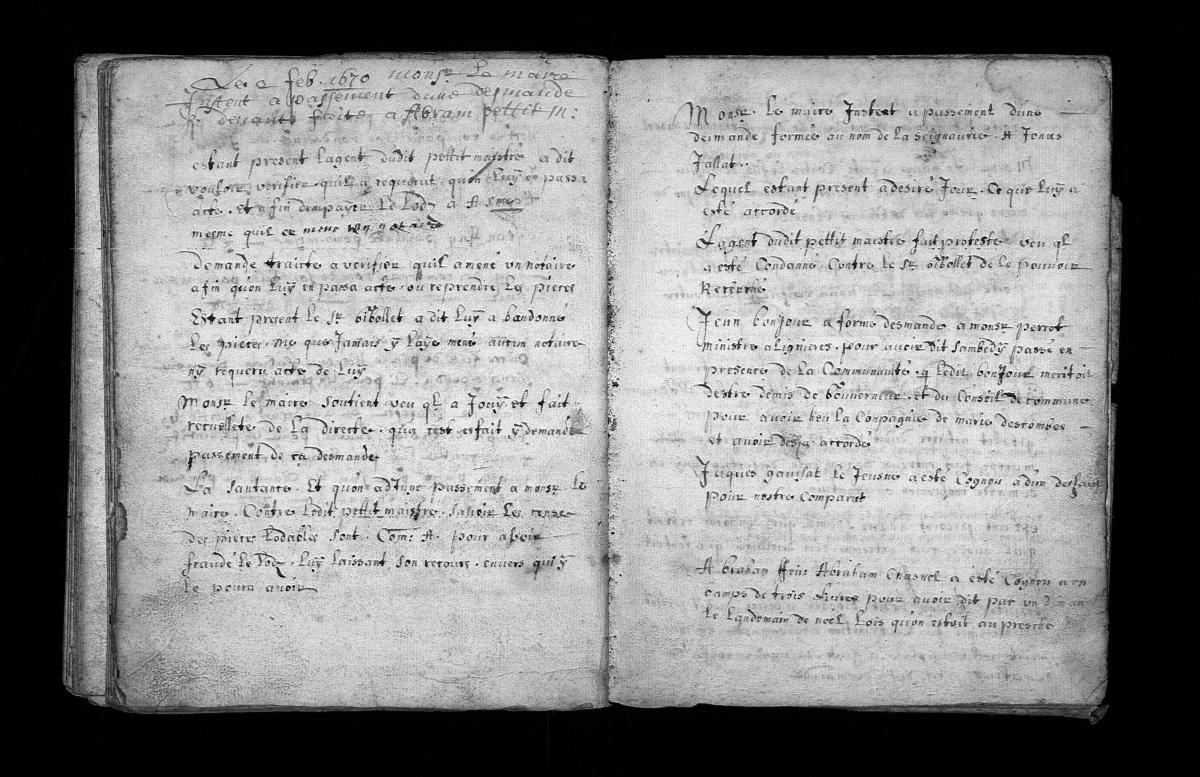 Le 2 feb. 1670 Monsr Le maire
Instent a passement dune desmande
devant faite a Abram pettit m:
estant present lagent dudit pettit maistre a dit
vouloir verifier quil a requerut quon Luÿ en passa
acte. Et afin dempayer Le Lodz a
mesme quil en mene un notaire
Demande traicte a verifier quil a mené un notaire
afin quon Luÿ en passa acte, ou reprendre Les pieces
Estant present le Sr oibollet a dit Luÿ a bandonné
Les pieces. Mé que Jamais ÿ Laye mené aucun notaire
nÿ requeru acte de Luÿ
Monsr le maire soutient veu ql a Jouÿ et fait
recuellete de La directe. qua cest esfait ÿ demande
passement de ça desmande
La santance. Et quon adjuge passement a monsr le
maire. Contre Ledit pettit maistre. savoir Les cense
des pieces Lodables sont. Com: A. pour avoir
fraudé le Lodz. Luÿ Laissant son recours. envers quil ÿ
le poura avoir
Monsr. le maire Instent a passement dune
demande formée au nom de la seigneurie. A Jonas
Jallat.
Lequel estant present a desiré Jour. Ce que Luÿ a
esté accordé
Lagent dudit pettit maistre fait proteste veu ql
a esté Condanné Contre le Sr oibollet de le pouvoir
Recerché
Jean bonjour a formé desmande a monsr perrot
ministre a Lignieres. pour avoir dit sambedÿ passé en
presence de la Communauté. q ledit bonjour meritoit
destre demis de Gouverneur. et du Conseil de commune
pour avoir heu la Compagnie de marie descombes
et avoir desja accordé
Jaques gauchat le Jeusne a esté Cognou a dun desfaut
pour nostre Comparut
Abraham ffeu Abraham Chasnel a esté Cognou a en
camps de trois Livres pour avoir dit par un
le Landemain de noël Lois quon estoit au presche